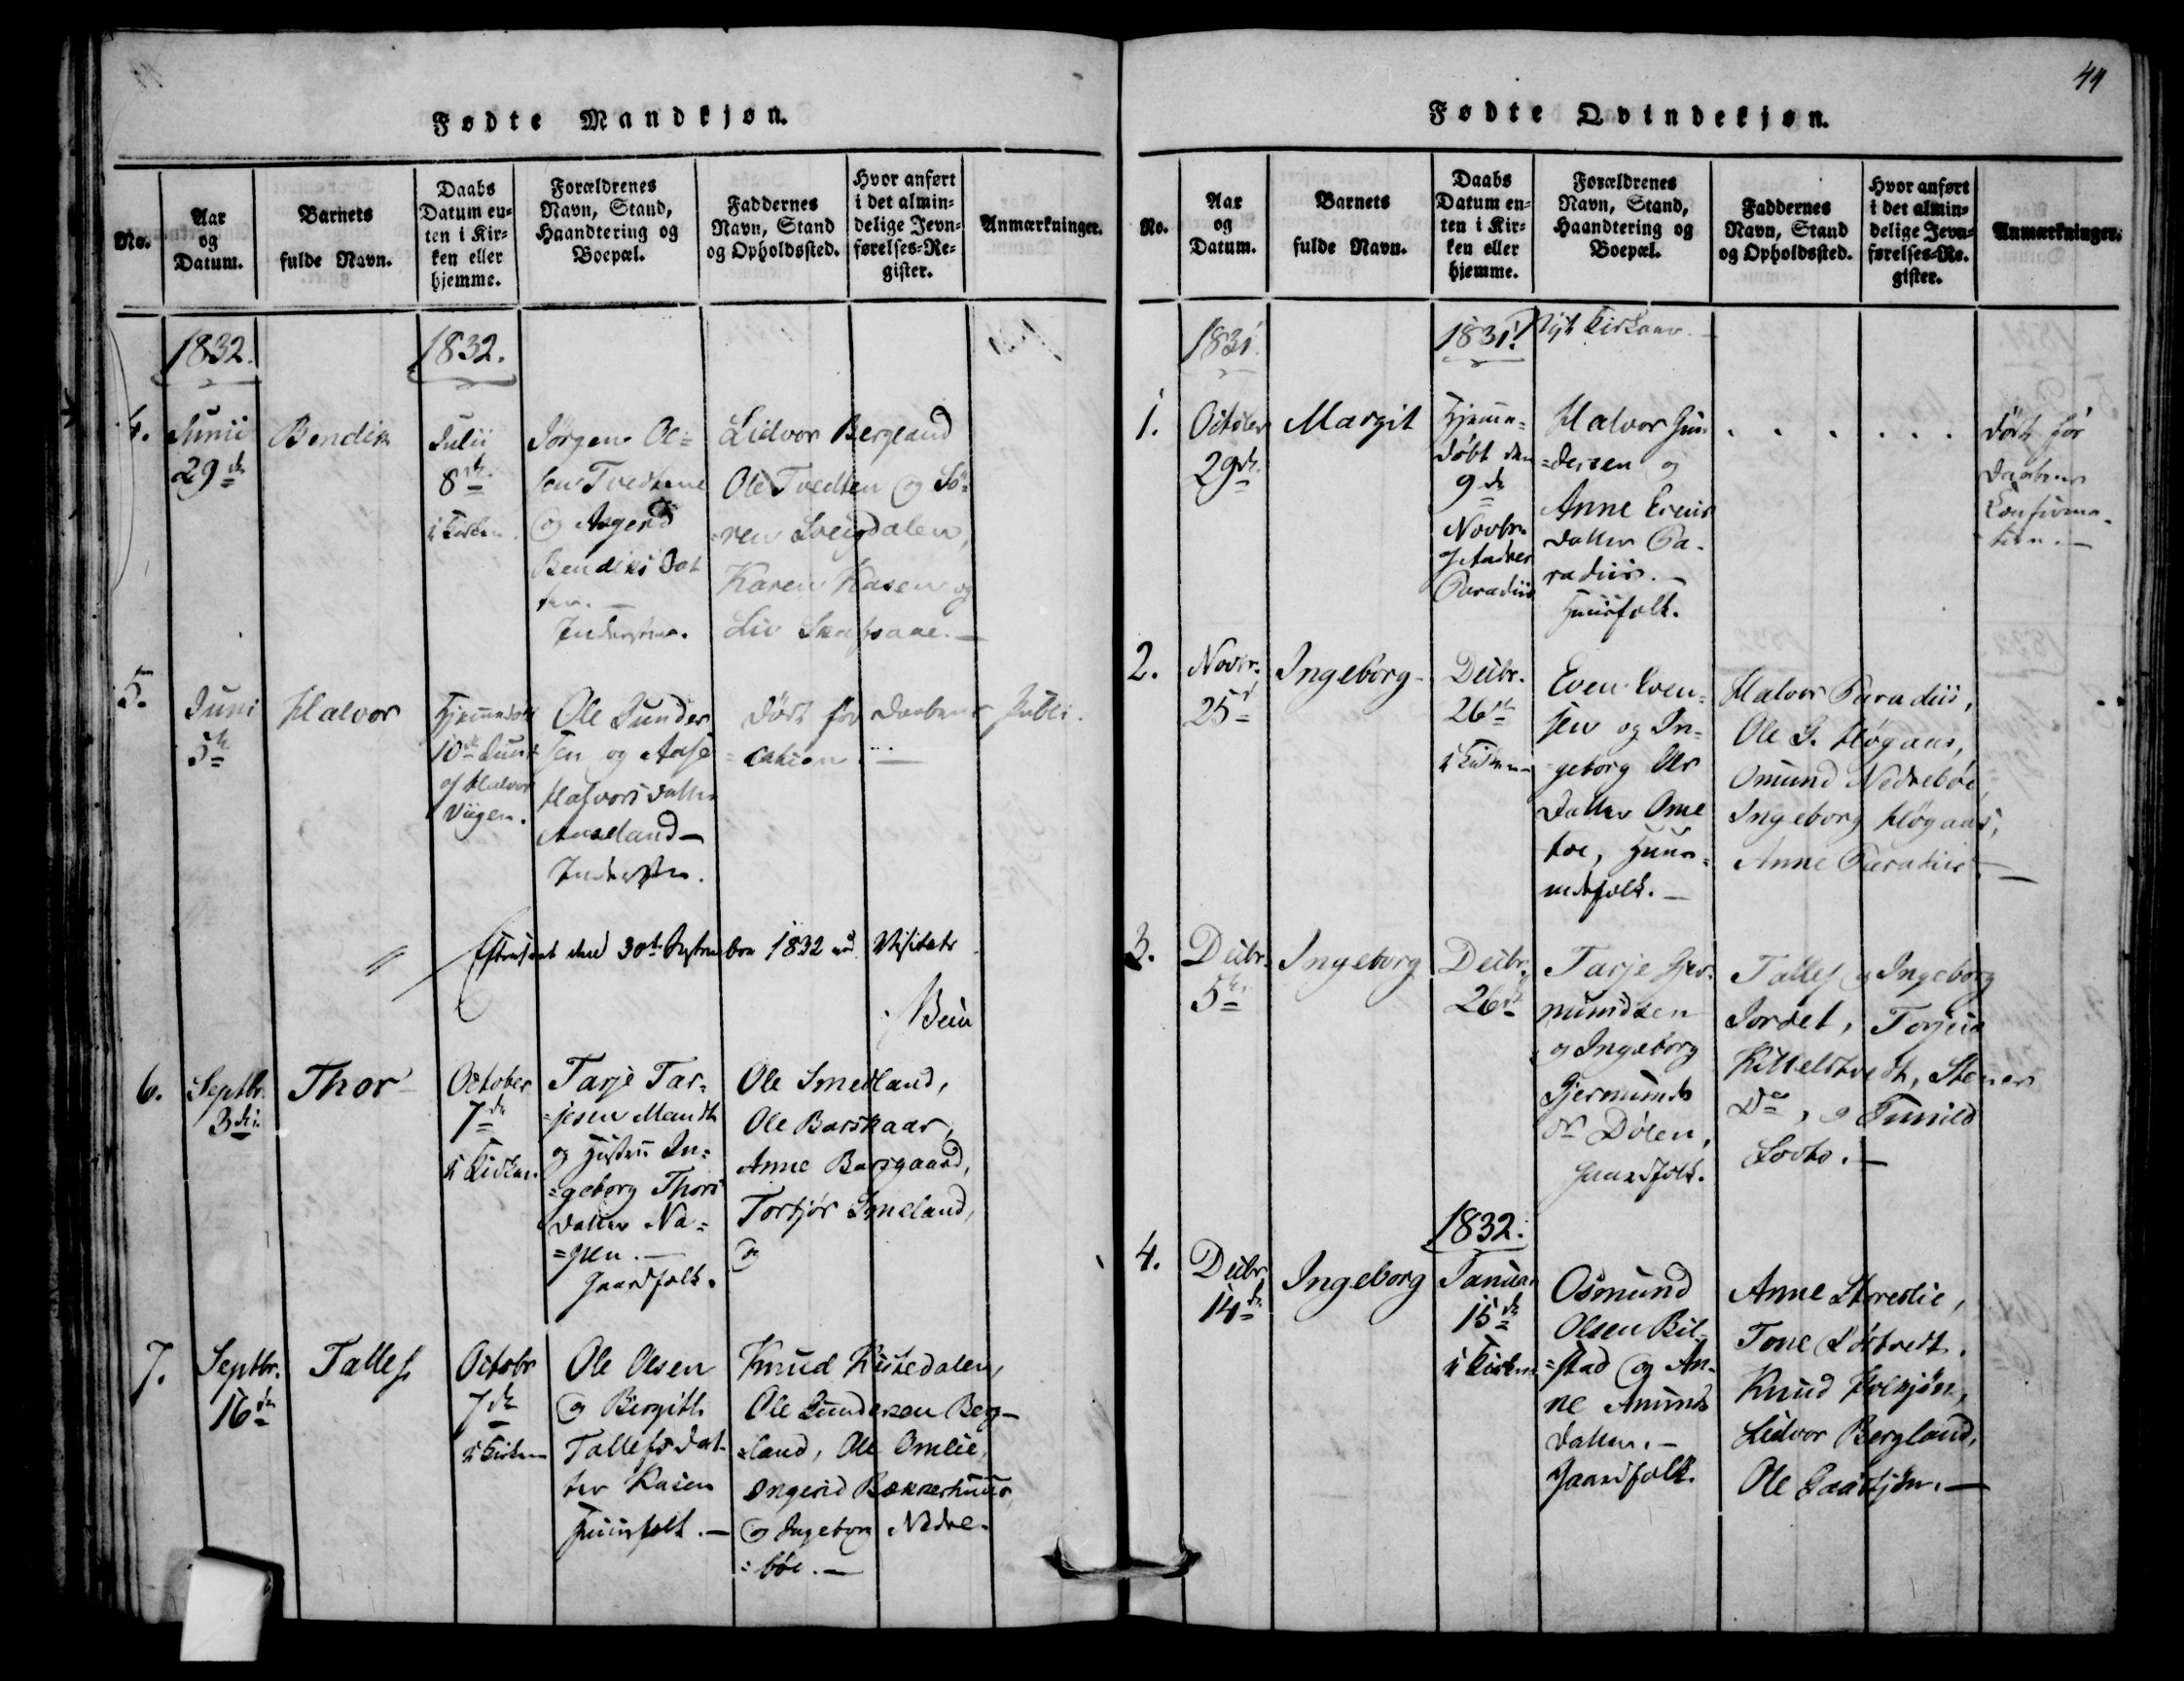 Fødte Mandkjøn.
No.
Aar
og
Datum.
Barnets
fulde Navn.
Daabs
Datum en-
ten i Kir-
ken eller
hjemme.
Forældrenes
Navn, Stand,
Haandtering og
Boepæl.
Faddernes
Navn, Stand
og Opholdssted.
Hvor anført
i det almin-
delige Jevn-
førelses-Re-
gister.
Anmærkninger.
1832.
1832.
4.
Junii
29de
Bendik
Julii
8de
i Kirken.
Jørgen Ol-
sen Tvedtene
og Asgerd
Bendiks Dat
ter. —
Inderster.
Lidvor Bergland
Ole Tvedten og Sø-
ren Sveigdalen,
Karen Kasen og
Liv Skafsaae. —
5.
Juni
5te
Halvor
Hjemmedøbt
10de Juni
af Halvor
Viigen.
Ole Gunder
sen og Aase
Halvors datter
Aaseland —
Inderster.
Død før Daabens Publi-
=cation. —
Efterseet den 30te September 1832 ved Visitats
6.
Septbr.
3die
Thor
October
7de
i Kirken
Tarje Tar-
=jesen Mandt
og Hustru In-
=geborg Thors
datter Na-
=gen. —
Gaardfolk.
Ole Smedland,
Ole Barskaar,
Anne Barsgaard,
Torbjør Smeland,
og
7.
Septbr.
16de
Tallef
Octobr
7de
i Kirken
Ole Olsen
og Bergith
Tallefs dat-
ter Kasen
Huusfolk. —
Knud Kistedalen,
Ole Gundersen Berg-
land, Ole Omlie,
Ingerid Bakkerhuus
og Ingeborg Nedre-
=bøe. —
44
Fødte Qvindekjøn.
No.
Aar
og
Datum.
Barnets
fulde Navn.
Daabs
Datum en-
ten i Kir-
ken eller
hjemme.
Forældrenes
Navn, Stand,
Haandtering og
Boepæl.
Faddernes
Navn, Stand
og Opholdssted.
Hvor anført
i det almin-
delige Jevn-
førelses-Re-
gister.
Anmærkninger.
1831.
1831.
Nyt Kirkeaar. —
1.
October
29de
Margit
Hjemme-
døbt den
9de
Novbr.
af Anders
Paradiis
Halvor Gun
=dersen og
Anne Evens
datter Pa-
radiis. —
Huusfolk.
. . . . . . .
Død før
Daabens
Confirma-
tion. —
2.
Novbr.
25de
Ingeborg
Decbr.
26de
i Kirken
Even Even-
sen og In-
=geborg Ols
Datter Ome
toe, Huus-
mdsfolk. —
Halvor Paradiis,
Ole G. Høgaas,
Omund Nedrebøe,
Ingeborg Høgaas,
Anne Paradiis. —
3.
Decbr.
5te
Ingeborg
Decbr.
26de
Tarje Gjer-
mundsen
og Ingeborg
Gjermunds
Dr Dølen,
Gaardfolk.
Tallef og Ingeborg
Jordet, Torjuus
Kittelstvedt, Stener
Do, og Gunild
4.
Decbr.
14de
Ingeborg
1832.
Januar
15de
i Kirken
Osmund
Olsen Bil-
=stad og An-
ne Amunds
datter. —
Gaardfolk.
Anne Storeslie,
Tone Løstvedt,
Knud
Lidvor Bergland,
Ole Gaastjøn. —